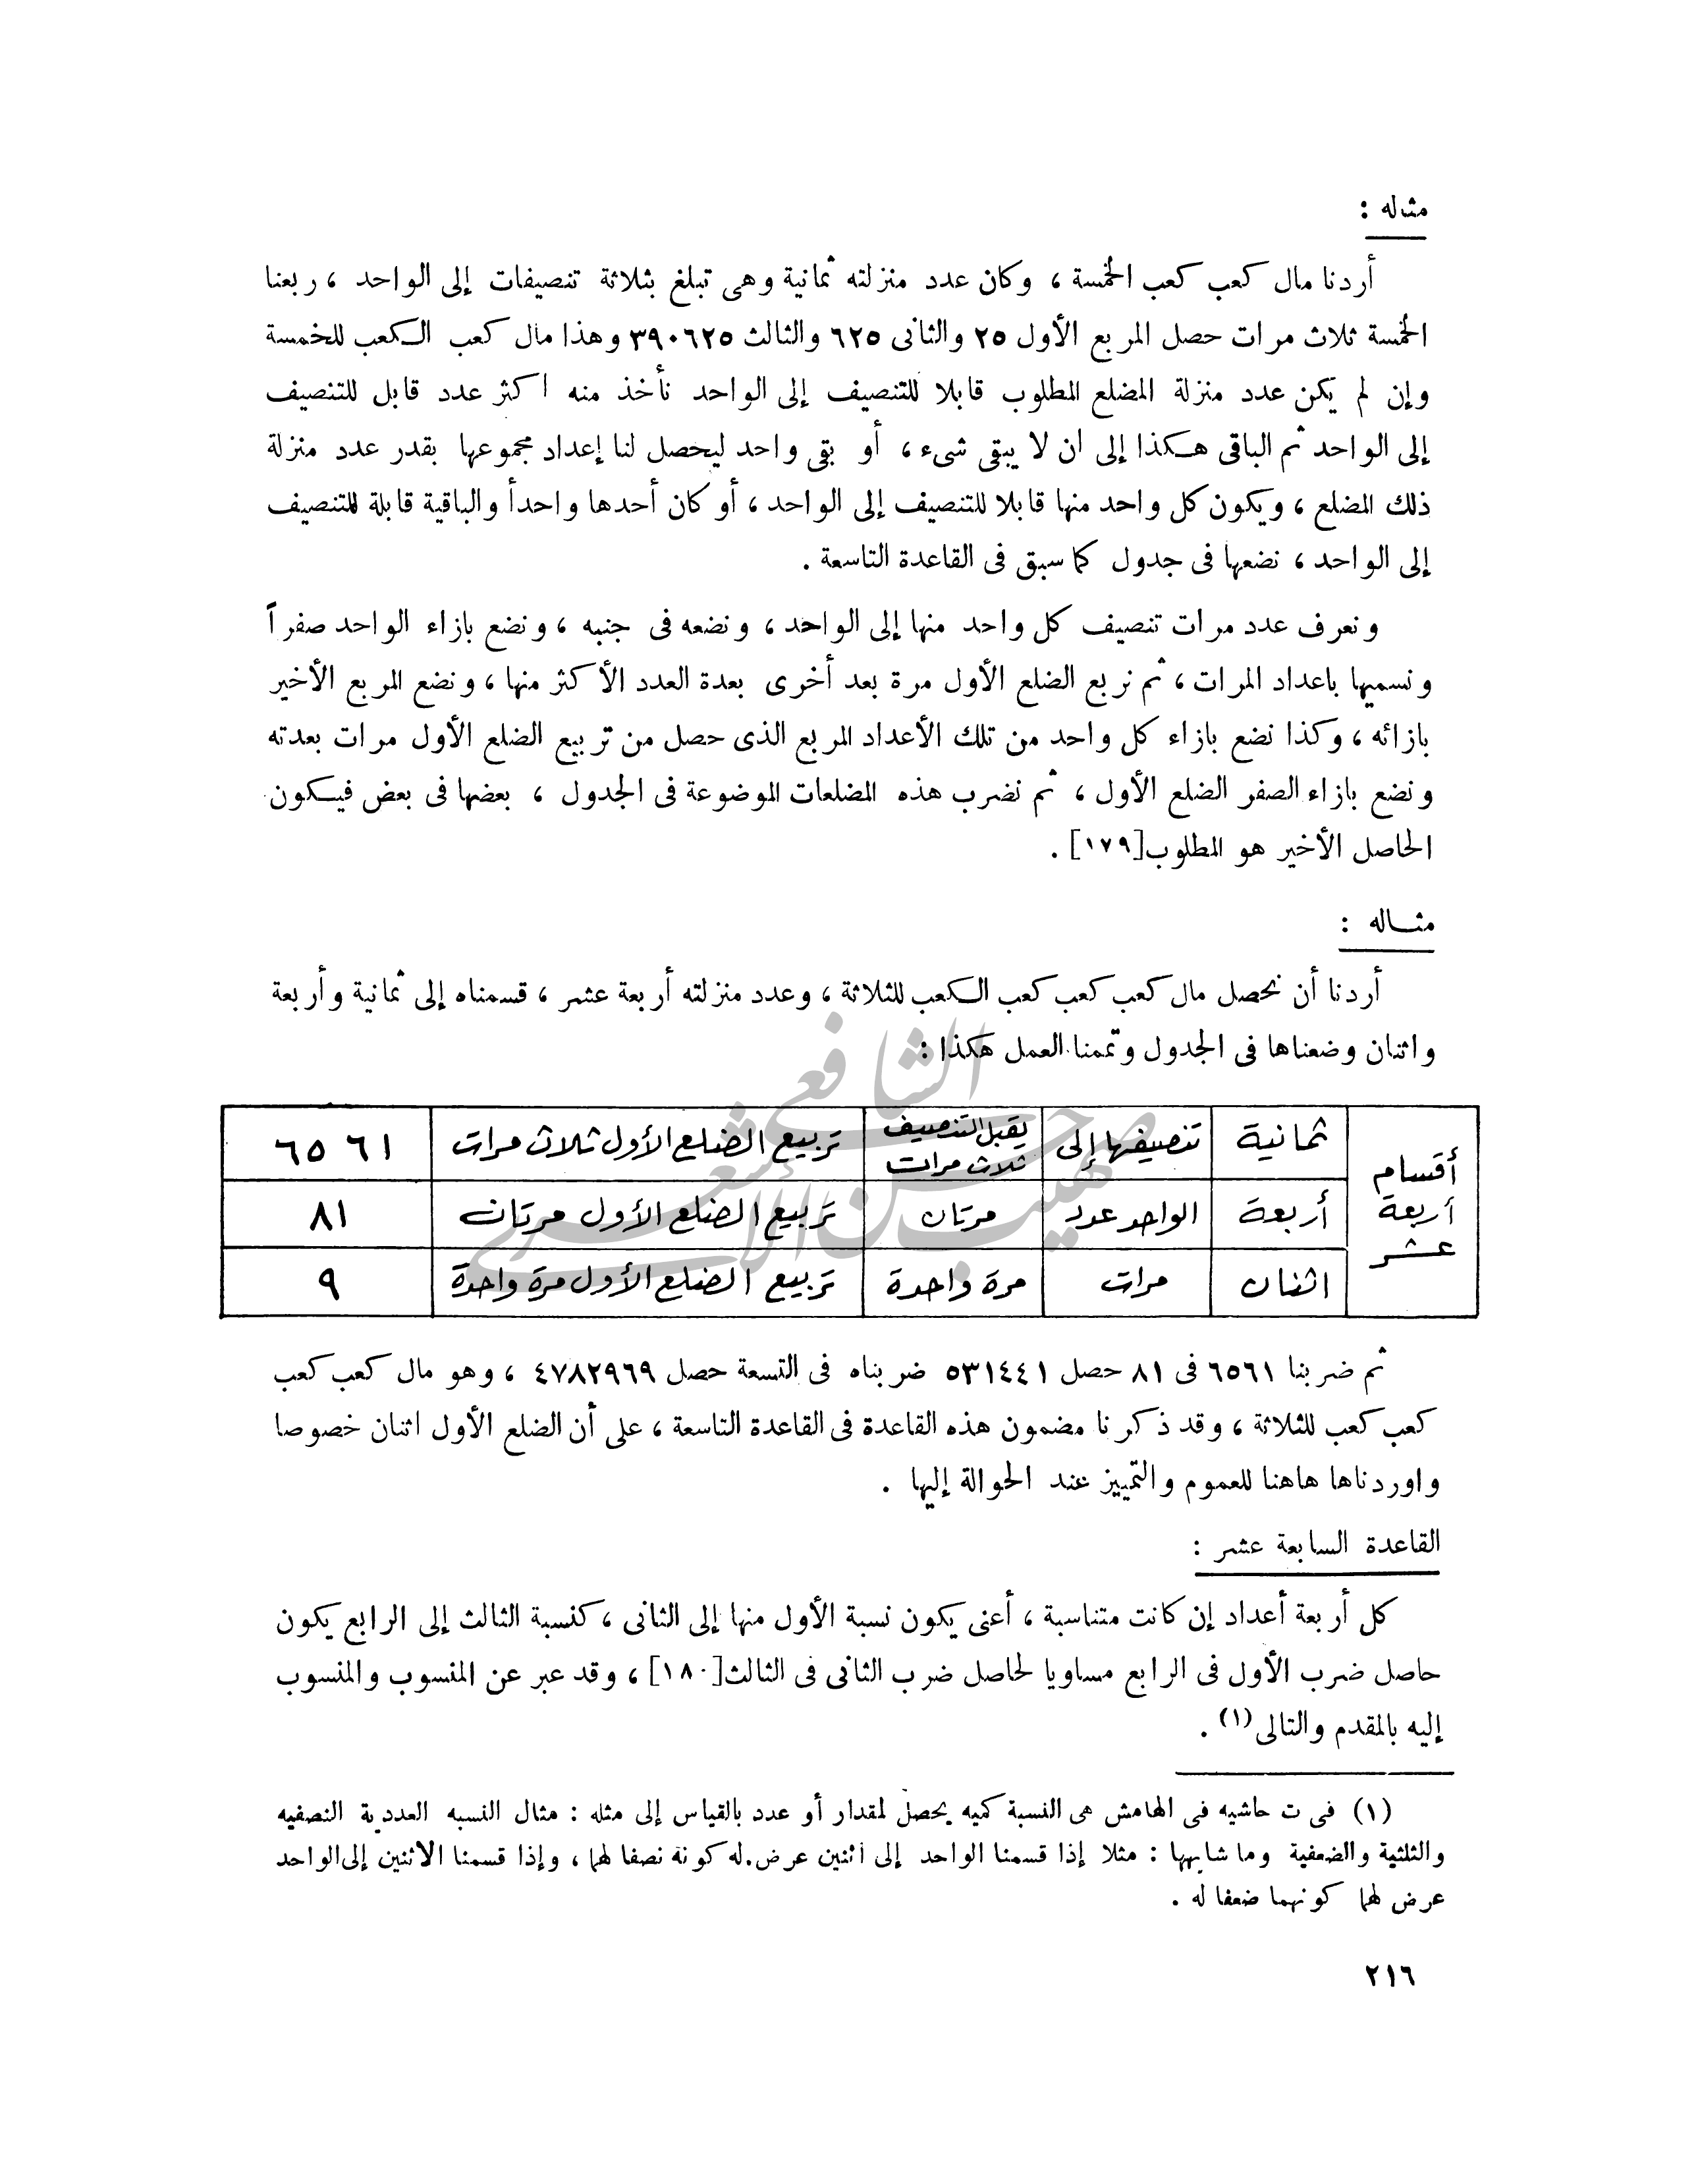 مثاله :
أردنا مال كعب كعب الخمسة ، وكان عدد منزلته ثمانية وهى تبلغ بثلاثة تنصيفات إلى الواحد ، ربعنا
الخمسة ثلاث مرات حصل المربع الأول ٢٥ والثانى ٦٢٥ والثالث ٣٩٠٦٢٥ وهذا مال كعب الكعب للخمسة
وإن لم يكن عدد منزلة المضلع المطلوب قابلا للتنصيف إلى الواحد نأخذ منه اكثر عدد قابل للتنصيف
إلى الواحد ثم الباقى هكذا إلى ان لا يبقى شىء ، أو بقى واحد ليحصل لنا إعداد مجموعها بقدر عدد منزلة
ذلك المضلع ، ويكون كل واحد منها قابلا للتنصيف إلى الواحد ، أو كان أحدها واحدأ والباقية قابلة للتنصيف
إلى الواحد ، نضعها فى جدول كما سبق فى القاعدة التاسعة .
ونعرف عدد مرات تنصيف كل واحد منها إلى الواحد ، ونضعه فى جنبه ، ونضع بازاء الواحد صفراً
ونسميها باعداد المرات ، ثم نربع الضلع الأول مرة بعد أخرى بعدة العدد الأكثر منها ، ونضع المربع الأخير
بازائه ، وكذا نضع بازاء كل واحد من تلك الأعداد المربع الذى حصل من تربيع الضلع الأول مرات بعدته
ونضع بازاء الصفر الضلع الأول ، ثم نضرب هذه المضلعات الموضوعة فى الجدول ، بعضها فى بعض فيكون
الحاصل الأخير هو المطلوب[١٧٩] .
مثاله :
أردنا أن نحصل مال كعب كعب كعب الكعب للثلاثة ، وعدد منزلته أربعة عشر ، قسمناه إلى ثمانية وأربعة
واثنان وضعناها فى الجدول وتممنا العمل هكذا :
أقسام أربعة عشر
ثمانية تنصيفها إلى يقبل التنصيف ثلاث مرات تربيع الضلع الأول ثلاث مرات ٦٥٦١
أربعة الواحد عدد مرتان تربيع الضلع الأول مرتان ٨١
اثنان مرات مرة واحدة تربيع الضلع الأول مرة واحدة ٩
ثم ضربنا ٦٥٦١ فى ٨١ حصل ٥٣١٤٤١ ضربناه فى التسعة حصل ٤٧٨٢٩٦٩ ، وهو مال كعب كعب
كعب كعب للثلاثة ، وقد ذكرنا مضمون هذه القاعدة فى القاعدة التاسعة ، على أن الضلع الأول اثنان خصوصا
واوردناها هاهنا للعموم والتمييز عند الحوالة إليها .
القاعدة السابعة عشر :
كل أربعة أعداد إن كانت متناسبة ، أعنى يكون نسبة الأول منها إلى الثانى ، كنسبة الثالث إلى الرابع يكون
حاصل ضرب الأول فى الرابع مساويا لحاصل ضرب الثانى فى الثالث[١٨٠] ، وقد عبر عن المنسوب والمنسوب
إليه بالمقدم والتالى(١) .
(١) فى ت حاشيه فى الهامش هى النسبة كميه يحصل لمقدار أو عدد بالقياس إلى مثله : مثال النسبه العددية النصفيه
والثلثية والضعفية وما شابهها : مثلا إذا قسمنا الواحد إلى اثنين عرض له كونه نصفا لهما ، وإذا قسمنا الاثنين إلى الواحد
عرض لهما كونهما ضعفا له .
٢١٦